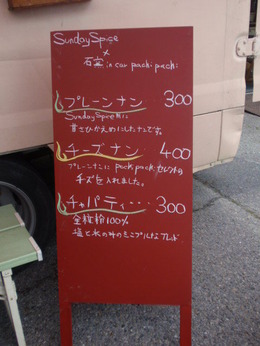 Sunday Spice
×
石窯 in car pachi pachi
プレーンナン 300
Sunday Spice
甘さひかえめにしたナンです。
チーズナン 400
プレーンナンに pachi pachi セレクトの
チーズを入れました。
チャパティ… 300
全粒粉100%
塩と水のみのシンプルなブレッド